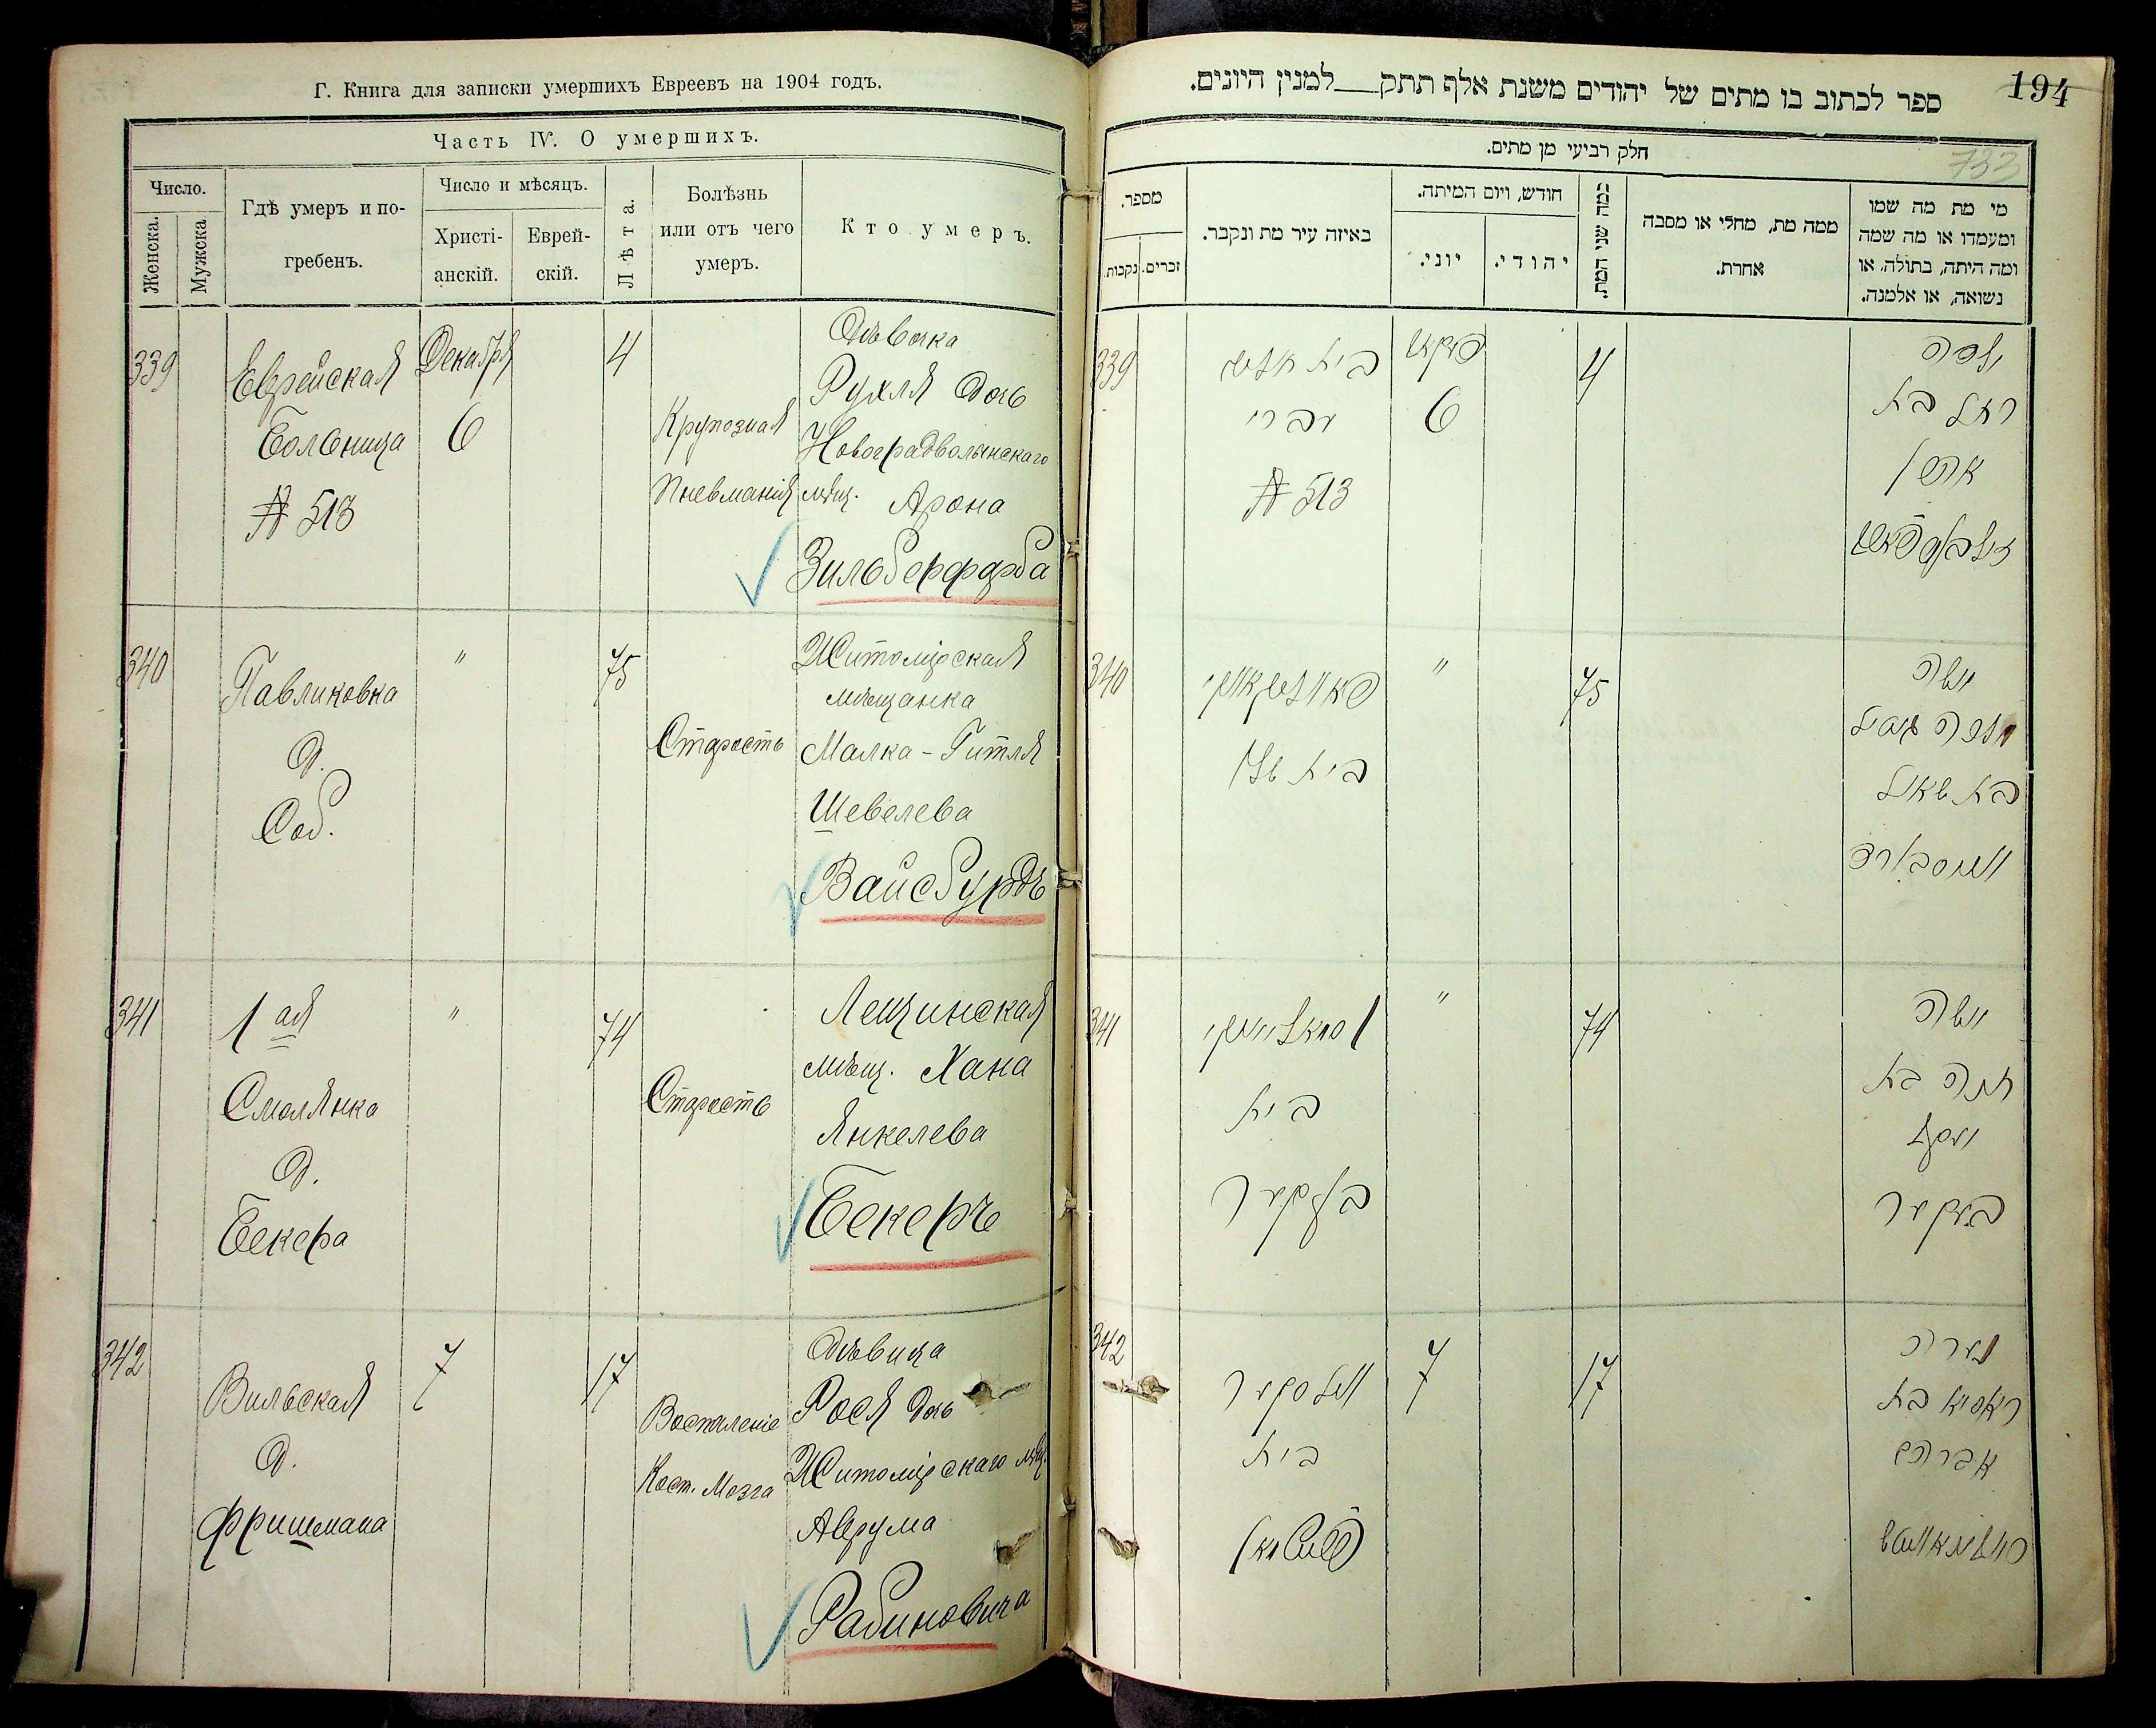 Г. Книга для записки умершихъ Евреевъ на 1904 годъ.
Часть IV. О умершихъ.
Число.
Женска.
Мужска
Гдѣ умеръ и по-
гребенъ.
Число и мѣсяцъ.
Христі-
анскій.
Еврей-
скій.
Лѣта.
Болѣзнь
или отъ чего
умеръ.
Кто умеръ.
339
Еврейская
Больница
№ 513
Декабря
6
4
Крупозная
Пневманія
Дѣвочка
Рухля дочь
Новоградволынскаго
мѣщ. Арона
Зильберфарба
340
Павликовка
д.
Соб.
"
75
Старость
Житомірская
мѣщанка
Малка-Гитля
Шевелева
Вайсбурдъ
341
1ая
Смолянка
д.
Бекера
"
74
Старость
Лещинская
мѣщ. Хана
Янкелева
Бекеръ
342
Вильская
д.
Фришмана
7
17
Воспаленіе
Кост. Мозга
Дѣвица
Рося дочь
Житомірскаго мѣщ.
Аврума
Рабиновича
194
ספר לכתוב בו מתים של יהודים משנת אלף תתק___למנין היונים.
732
חלק רביעי מן מתים.
מספר.
נקבות.
זכרים.
באיזה עיר מת ונקבר.
חודש, ויום המיתה.
יוני.
יהודי.
כמה שני המת.
ממה מת, מחלי או מסבה
אחרת.
מי מת מה שמו
ומעמדו או מה שמה
ומה היתה, בתולה, או
נשואה, או אלמנה.
339
№ 513
6
4
ילדה
רחל בת
אהרן
זילבערפארב
340
"
75
אשה
מלכה גיטל
בת שאול
ווייסבורד
341
בית
בעקער
"
74
אשה
חנה בת
יעקב
בעקער
342
ווילסקער
בית
7
17
נערה
ראסיא בת
אברהם